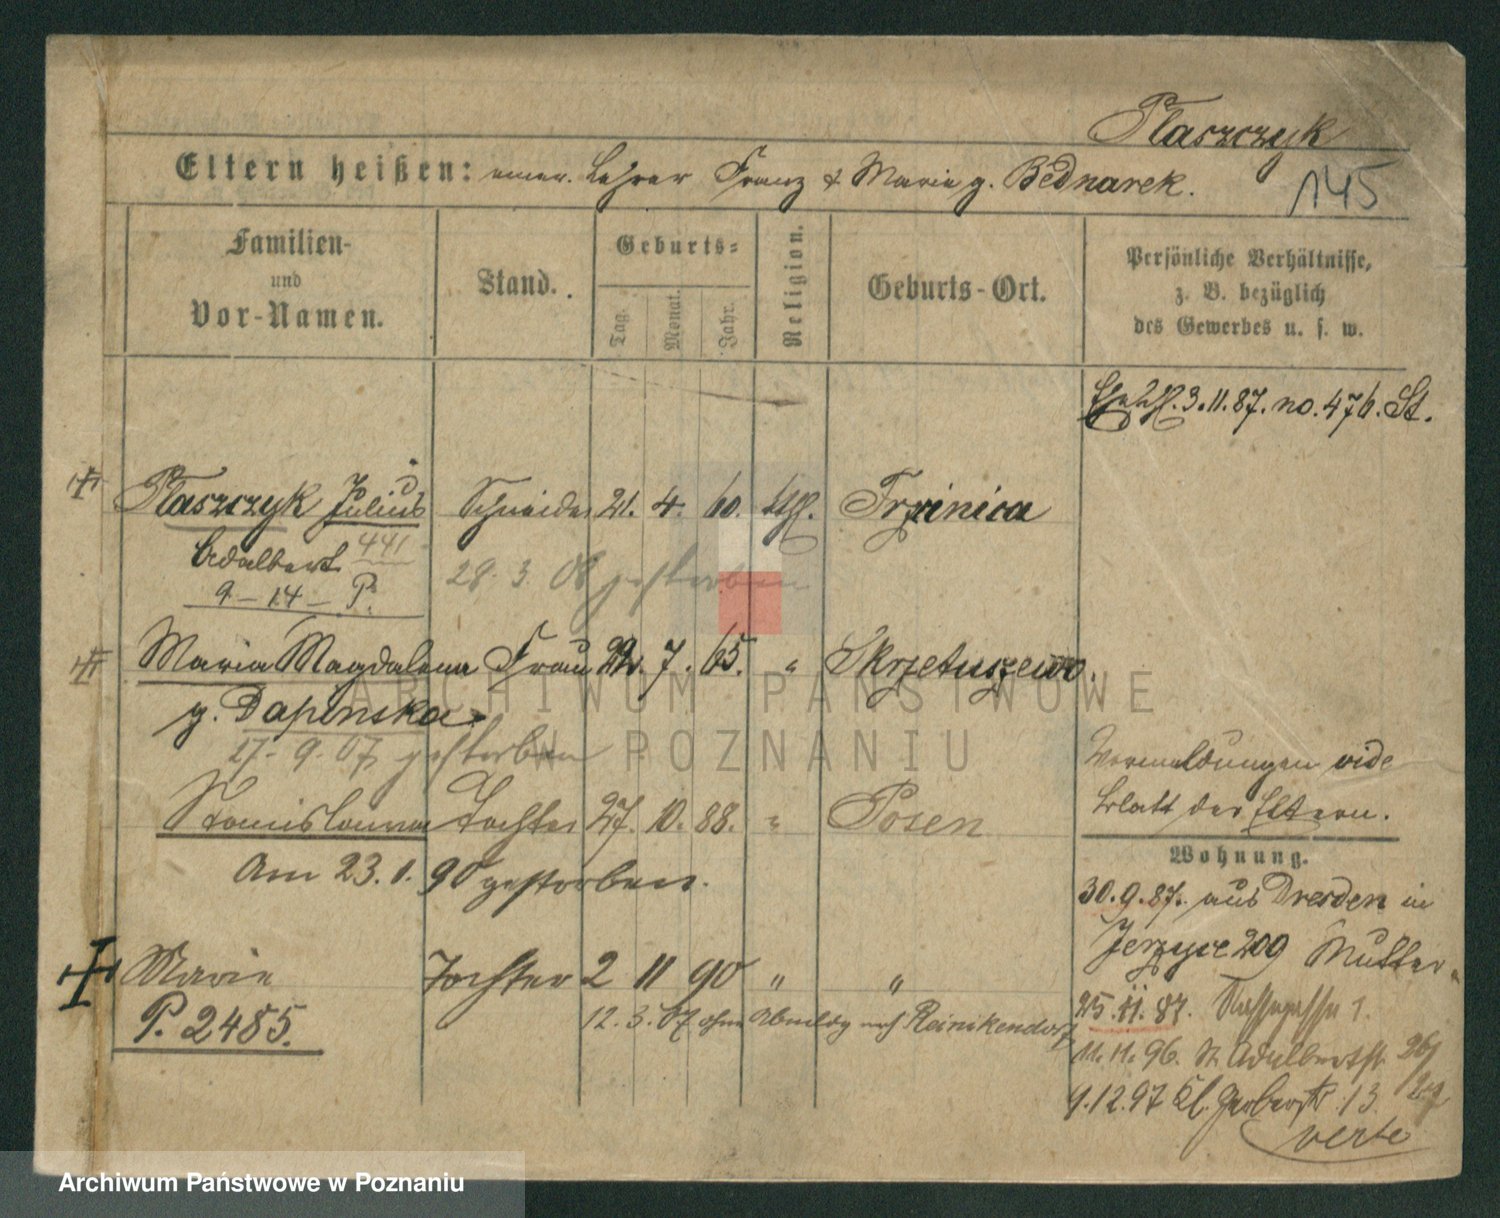 Płaszczyk
145
Eltern heißen: emer. Lehrer Franz & Marie g. Bednarek.
Familien-
und
Vor-Namen.
Stand.
Geburts-
Tag.
Monat.
Jahr.
Religion.
Geburts-Ort.
Persönliche Verhältnisse,
z. B. bezüglich
des Gewerbes u. s. w.
3.11.87. no. 476. St.
Płaszczyk Julius Schneider 21. 4. 60. kthl. Trzcinica
Adalbert 441
9 - 14 - P.
28. 3. 06 gestorben
Maria Magdalena Frau 22. 7. 65. " Skrzetuszewo.
g. Dapinska.
27. 9. 07 gestorben
Stanislawa Tochter 27. 10. 88. " Posen
Am 23. 1. 90 gestorben.
Vermeldungen vide
Blatt der Eltern.
Wohnung.
30. 9. 87. aus Dresden in
Jerzyce 209 Mutter.
Marie Tochter 2 11 90 " "
P. 2485.
12. 3. 07 ohne Abmldg nach Reinikendorf
25. 11. 87. 1.
11. 11. 96. St. Adalbertstr. 26/
27
9. 12. 97 Kl. Gerberstr. 13
verte
ARCHIWUM PAŃSTWOWE
W POZNANIU
Archiwum Państwowe w Poznaniu